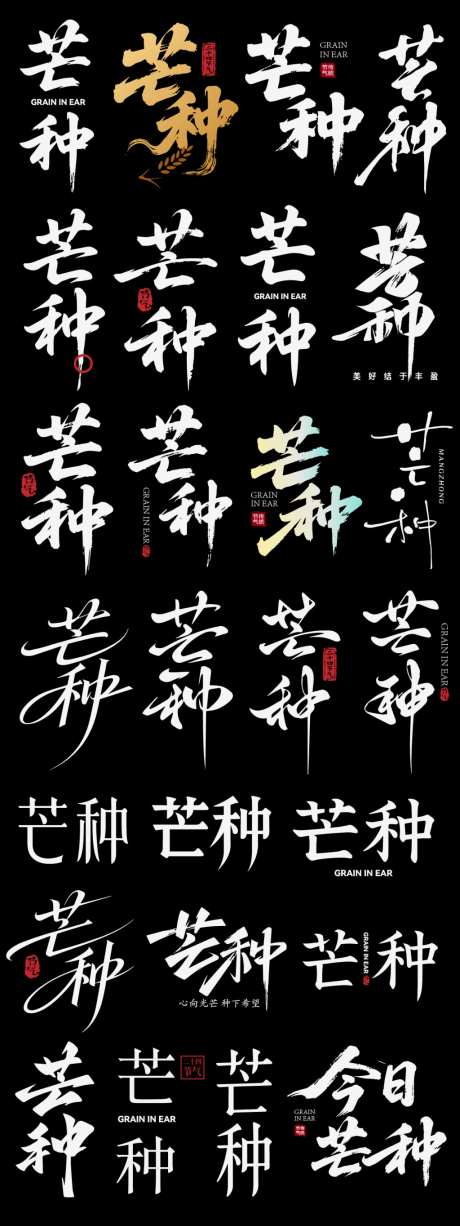 芒种
GRAIN IN EAR
芒种
芒种
GRAIN
IN EAR
芒种
芒种
芒种
芒种
GRAIN IN EAR
芒种
美好结于丰盈
芒种
芒种
GRAIN IN EAR
芒种
GRAIN
IN EAR
芒种
MANGZHONG
芒种
芒种
芒种
芒种
GRAIN IN EAR
芒种
芒种
芒种
GRAIN IN EAR
芒种
芒种
心向光芒 种下希望
芒种
GRAIN IN EAR
芒种
芒种
GRAIN IN EAR
二十四
节气
芒种
今日
芒种
GRAIN
IN EAR